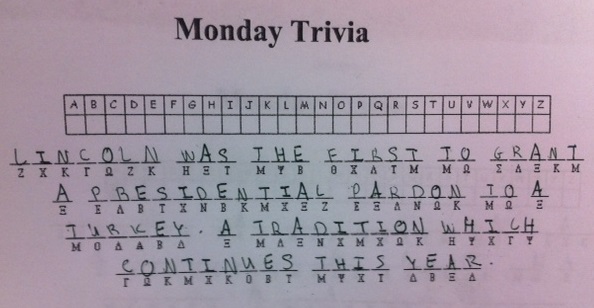 Monday Trivia
A B C D E F G H I J K L M N O P Q R S T U V W X Y Z
LINCOLN WAS THE FIRST TO GRANT
Ζ Χ Κ Γ Ω Ζ Κ Η Ξ Τ Μ Ψ Β Θ Χ Δ Τ Μ Μ Ω Σ Δ Ξ Κ Μ
A PRESIDENTIAL PARDON TO A
Ξ Ε Δ Β Τ Χ Ν Β Κ Μ Χ Ξ Ζ Ε Ξ Δ Ν Ω Κ Μ Ω Ξ
TURKEY. A TRADITION WHICH
Μ Ο Δ Α Β Δ Ξ Μ Δ Ξ Ν Χ Μ Χ Ω Κ Η Ψ Χ Γ Ψ
CONTINUES THIS YEAR.
Γ Ω Κ Μ Χ Κ Ο Β Τ Μ Ψ Χ Τ Δ Β Ξ Δ